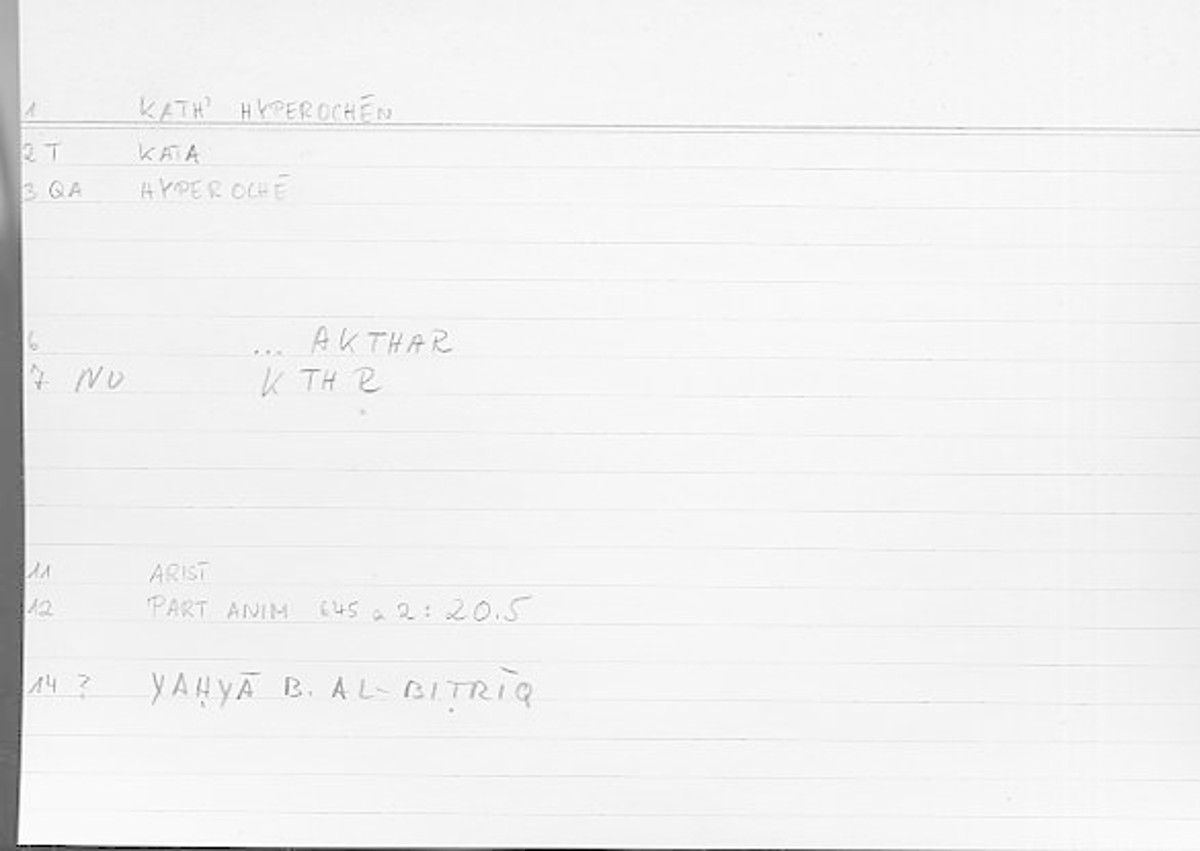 1 KATH' HYPEROCHĒN
2 T KATA
3 QA HYPEROCHĒ
6 ... AKTHAR
7 NU K TH R
11 ARIST
12 PART ANIM 645 a 2: 20.5
14 ? YAḤYĀ B. AL-BIṬRĪQ